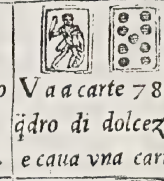 o Va a carte 78
q̃dro di dolcez
. e caua vna car